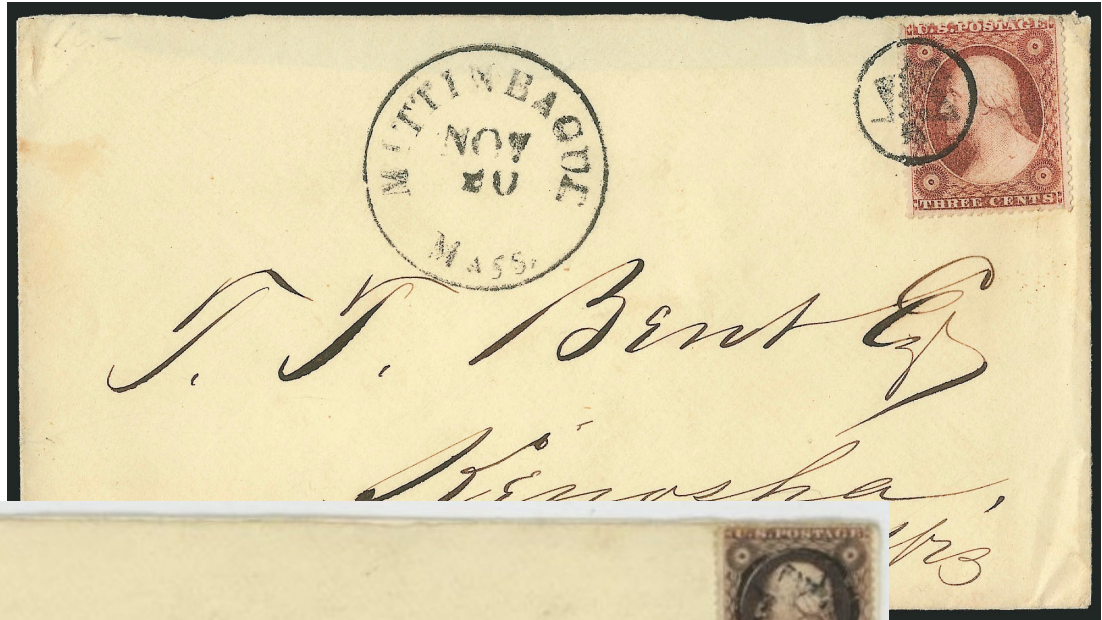 U.S. POSTAGE
THREE CENTS
MATTINEAGUE
NOV
20
MASS.
T. T. Bent Esq
Kenosha,
U.S. POSTAGE